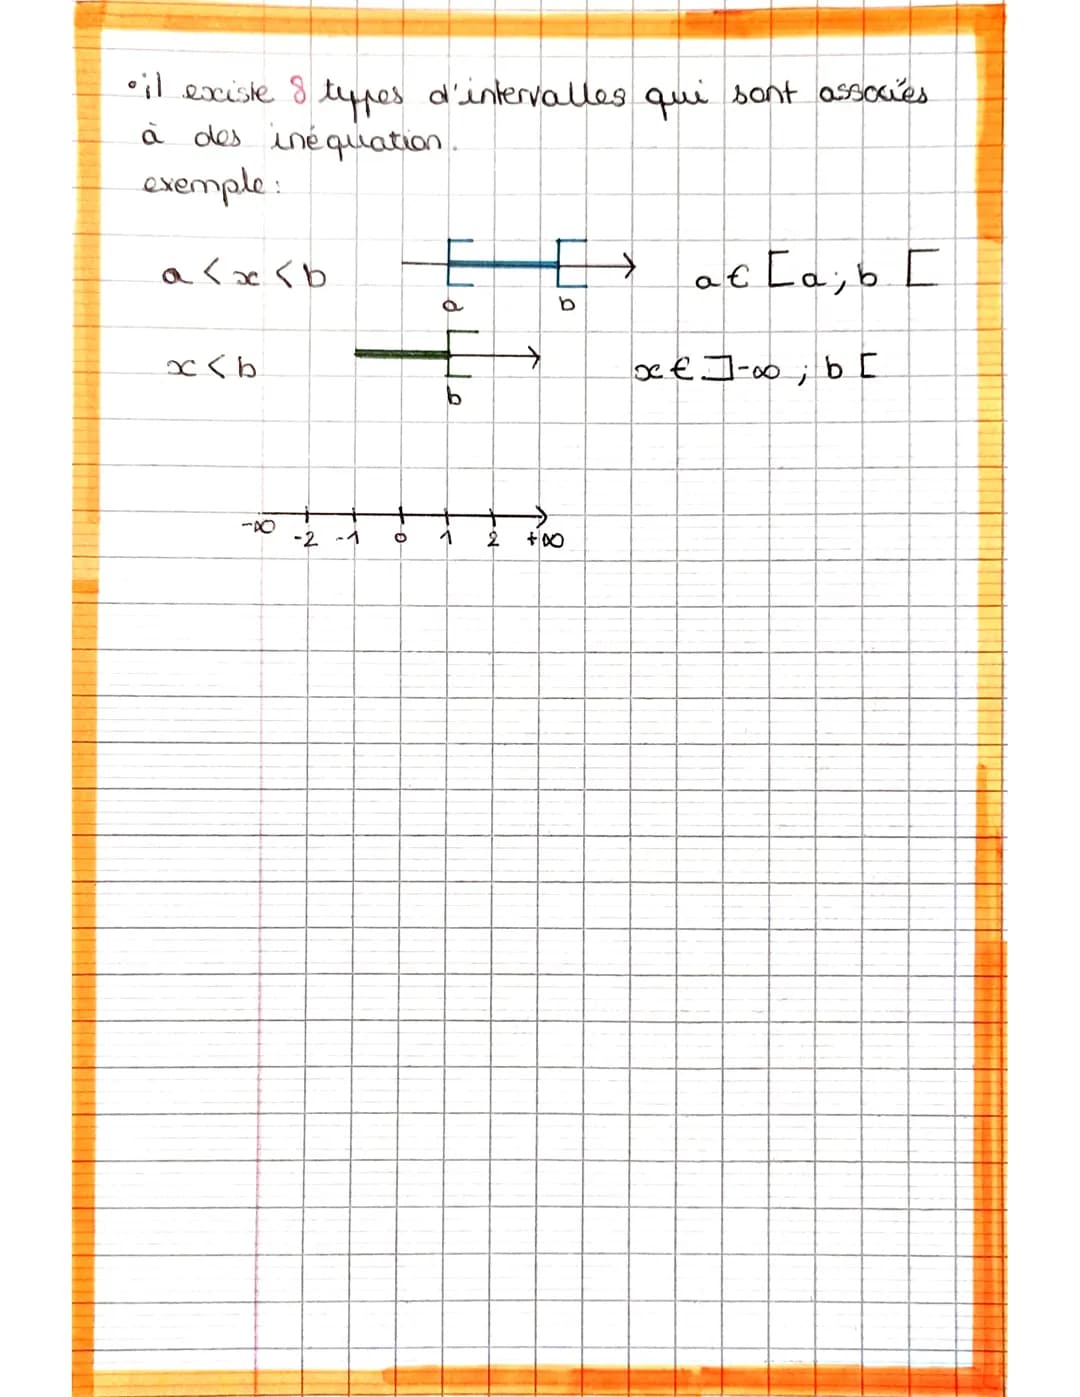 •il existe 8 types d'intervalles qui sont associés
à des inéquation.
exemple:
a < x < b
a b
a € [a;b [
x < b
b
x € ]-∞ ; b [
-∞ -2 -1 0 1 2 +∞